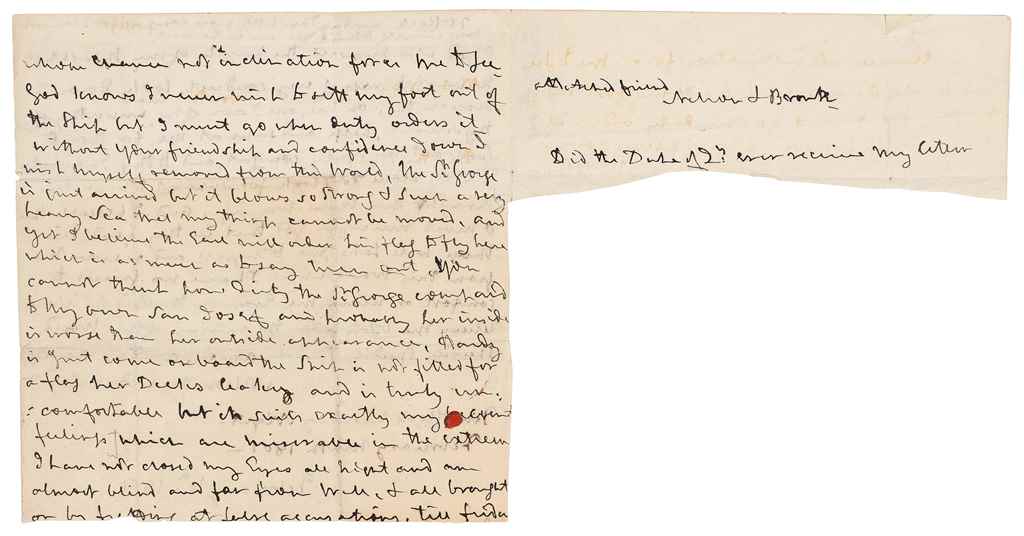 whom chance not inclination forces me to see
God knows I never wish to sett my foot out of
the Ship but I must go when duty orders it
without your friendship and confidence I own I
wish myself removed from this World, The St. George
is just arrived but it blows so strong & such a very
heavy Sea that my things cannot be moved, and
yet I believe the Earl will order his flag to fly here
which is as much as to say turn out, you
cannot think how Dirty the St. George compared
to my own San Josef and probably her inside
is worse than her outside appearance, Hardy
is just come on board the Ship is not fitted for
a flag her Decks leaky and is truly un:
:comfortable but it suits exactly my present
feelings which are miserable in the extreme
I have not closed my Eyes all night and am
almost blind and far from Well, & all brought
on by at false accusations, till friday
attached friend
Nelson & Bronte
Did the Duke of Q: ever receive my letter